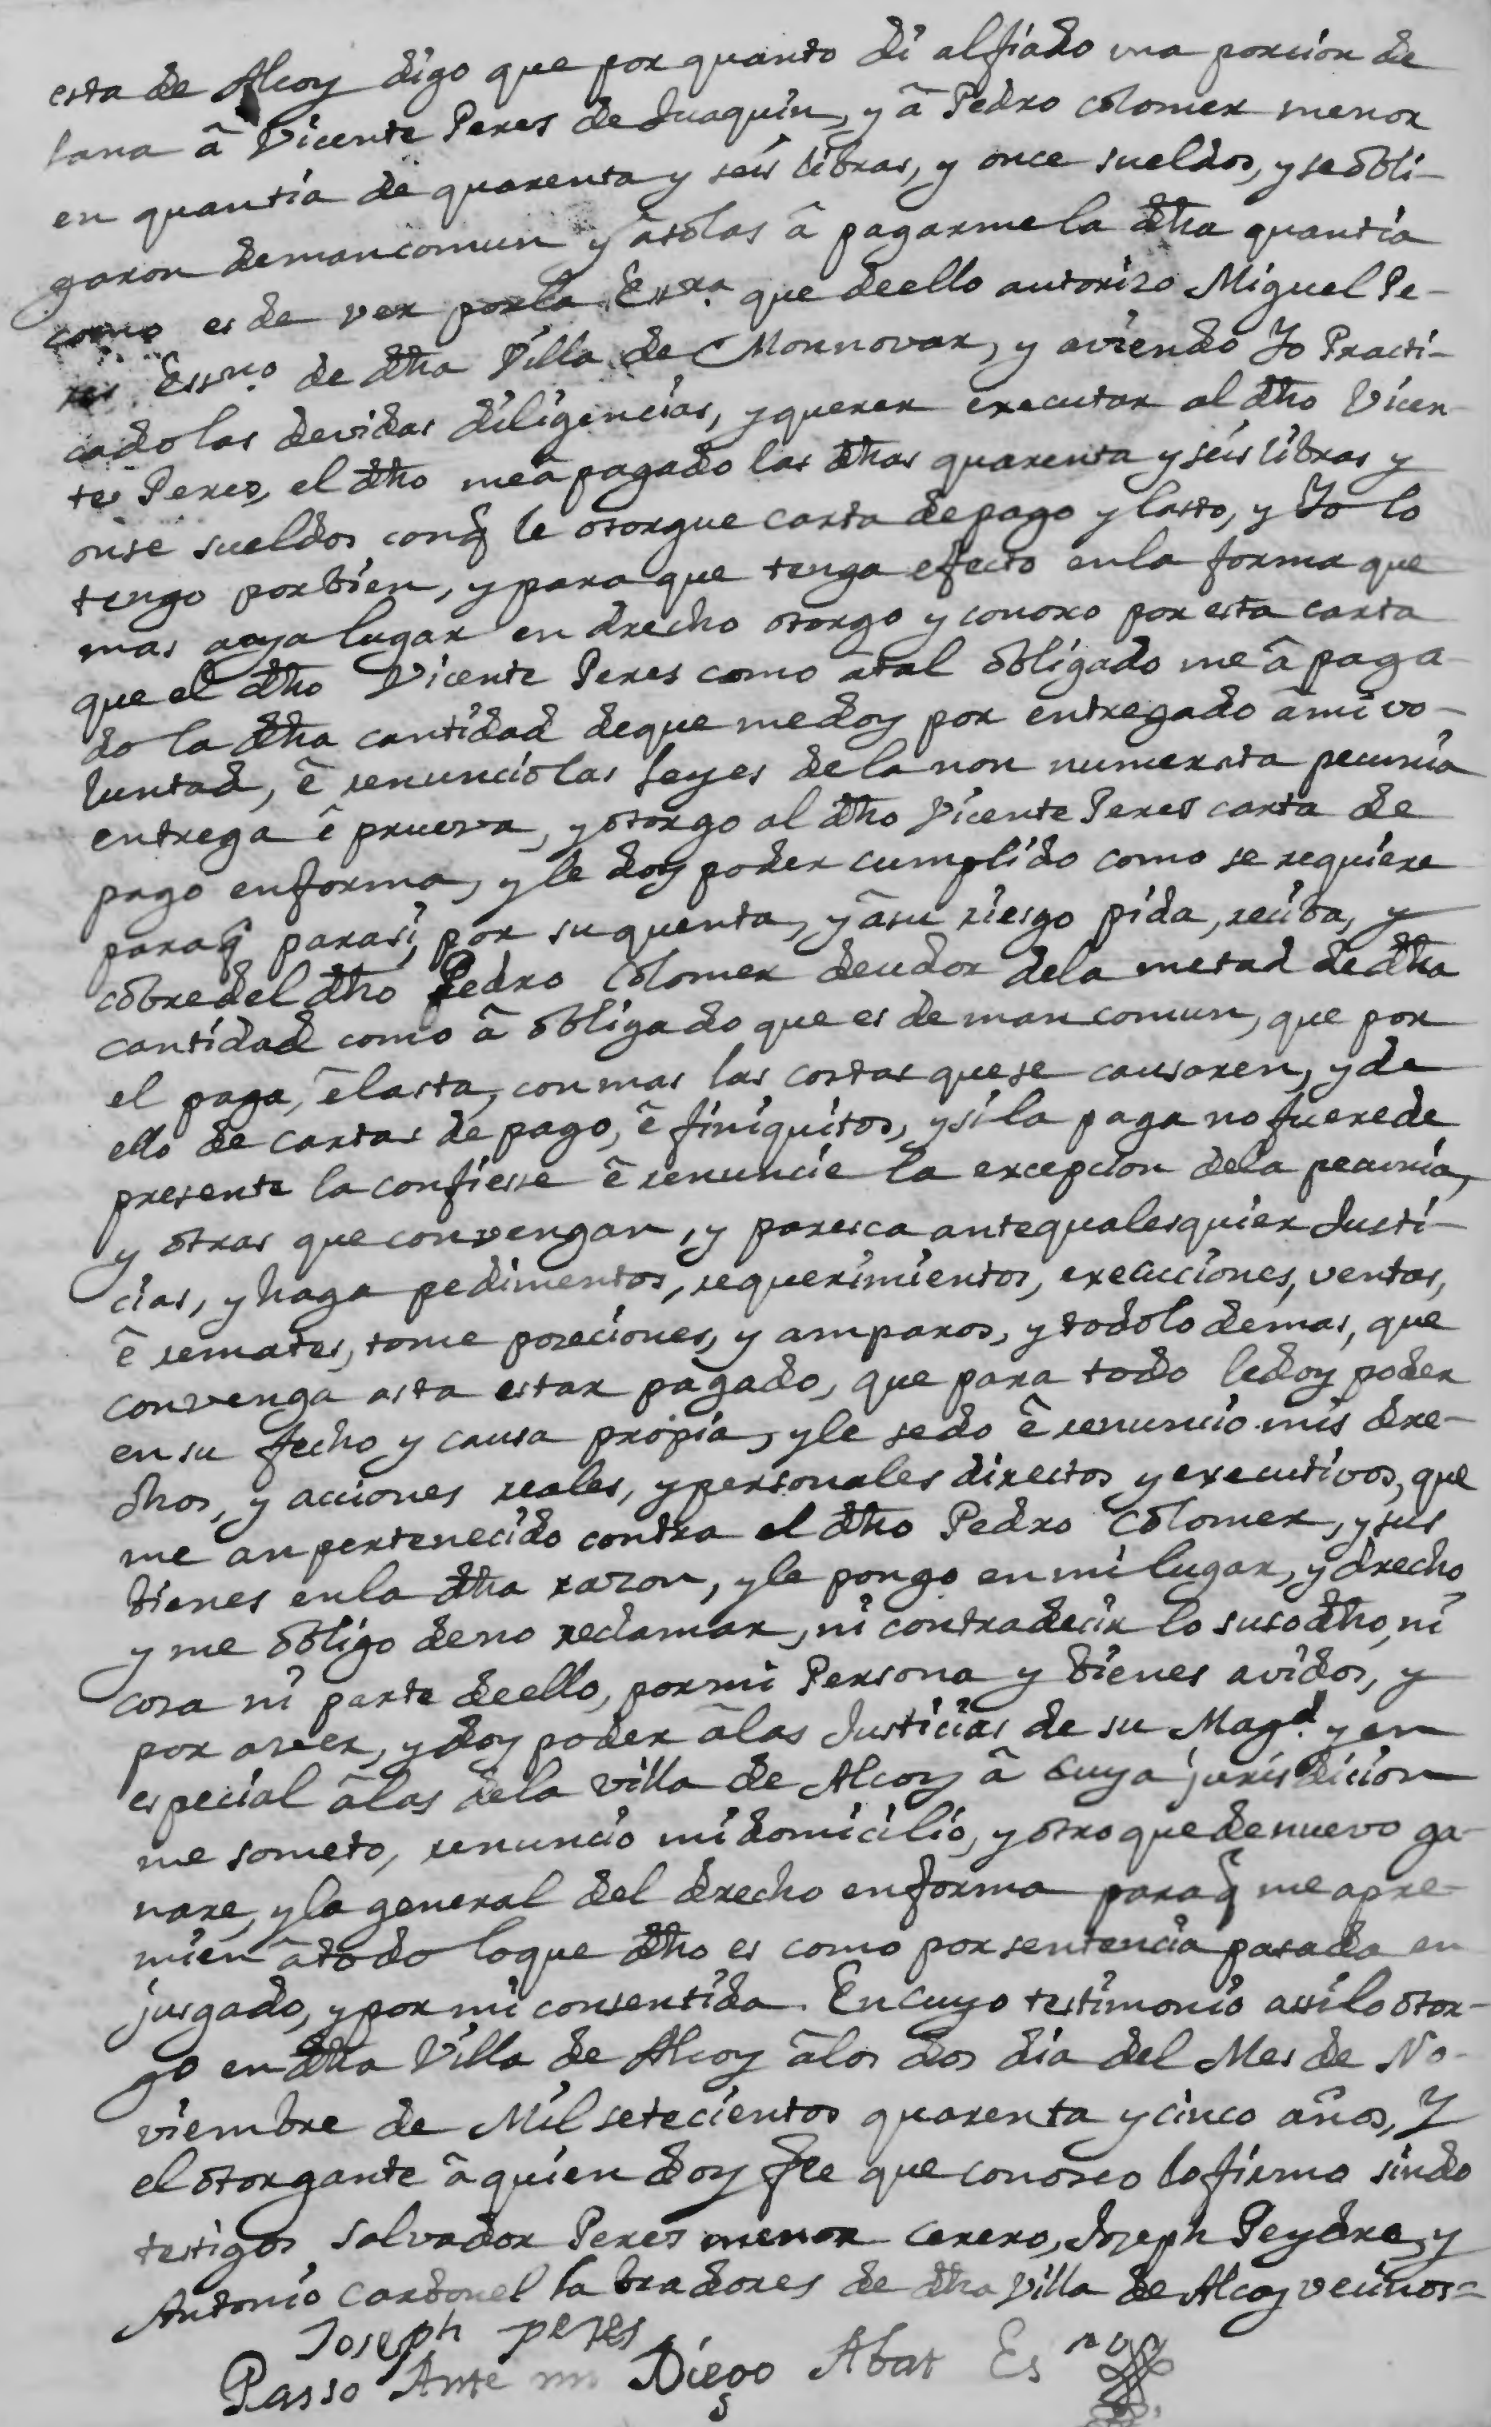 esta de Alcoy digo que por quanto di alfiado una porcion de
lana â Vicente Peres de Juaquin, y â Pedro Colomer menor
en quantia de quarenta y seis libras, y once sueldos, y se obli-
garon demancomun y âsolas â pagarmela dha quantia
como es de ver por la Essra. que deello autoriso Miguel Pe-
res Essno. de dha Villa de Monnovar, y aviendo Yo Practi-
cado las devidas diligencias, y querer executar al dho Vicen-
te Peres, el dho meâ pagado las dhas quarenta y seis libras y
onse sueldos conq̃ le otorgue carta de pago y lasto, y Yo lo
tengo porbien, y para que tenga efecto enla forma que
mas aya lugar en drecho otorgo y conoxo por esta carta
que el dho Vicente Peres como atal obligado me â paga-
do la dha cantidad deque medoy por entregado âmi vo-
luntad, ê renuncio las Leyes dela non numerata pecunia
entrega ê prueva, y otorgo al dho Vicente Peres carta de
pago enforma, y le doy poder cumplido como se requiere
paraq̃ parasi, por su quenta, y âsu riesgo pida, reciba, y
cobre del dho Pedro Colomer deudor dela metad de dha
cantidad como â obligado que es de mancomun, que por
el paga, ê lasta, con mas las costas que se causaren, y de
ello de cartas de pago, ê finiquitos, y si la paga no fuere de
presente la confiesse ê renuncie la excepcion dela pecunia,
y otras que convengan, y paresca antequalesquier Justi-
cias, y haga pedimentos, requerimientos, execuciones, ventas,
ê remates, tome poseciones, y amparos, y todo lo demas, que
convenga asta estar pagado, que para todo ledoy poder
en su fecho y causa propia, y le sedo ê renuncio mis dre-
chos, y acciones reales, y personales directos y executivos, que
me an pertenecido contra el dho Pedro Colomer, y sus
bienes enla dha razon, y le pongo en mi lugar, y drecho,
y me obligo deno reclamar, ni contradecir lo susodho, ni
cosa ni parte deello, por mi Persona y bienes avidos, y
por aver, y doy poder âlas Justicias de su Magd. y en
especial âlas dela villa de Alcoy â cuya jurisdicion
me someto, renuncio mi domicilio, y otro que denuevo ga-
nare, y la general del drecho enforma paraq̃ me apre-
mien âtodo loque dho es como por sentencia pasada en
jusgado, y por mi consentida. En cuyo testimonio assi lo otor-
go en dha Villa de Alcoy âlos dos dia del Mes de No-
viembre de Mil setecientos quarenta y cinco años, Y
el otorgante â quien doy fee que conosco lo firmo sindo
testigos Salvador Peres menor cerero, Joseph Peydro, y
Antonio Carbonel labradores de dha Villa de Alcoy vecinos=
Joseph peres
Passo Ante mi Diego Abat Esno